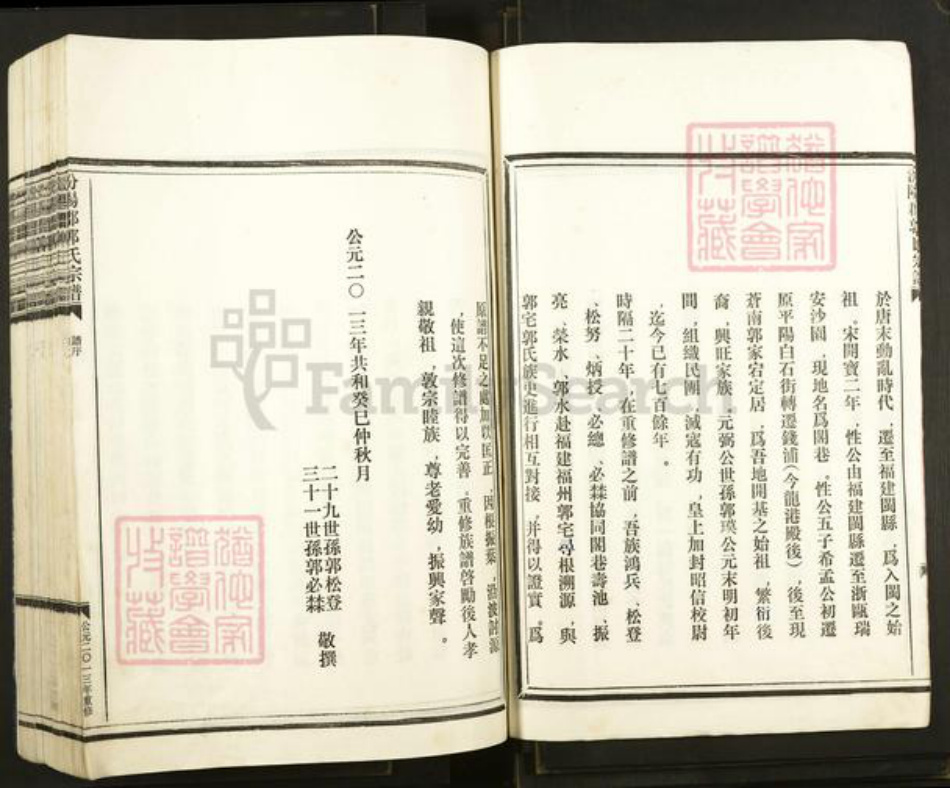 於唐末動亂時代,遷至福建閩縣,爲入閩之始
祖。宋開寶二年,性公由福建閩縣遷至浙甌瑞
安沙園,現地名爲閣巷。性公五子希孟公初遷
原平陽白石街轉遷錢浦(今龍港殿後),後至現
蒼南郭家宕定居,爲吾地開基之始祖,繁衍後
裔,興旺家族。元弼公世孫郭瑛公元末明初年
間,組織民團,減寇有功,皇上加封昭信校尉
,迄今已有七百餘年。
時隔二十年,在重修譜之前,吾族鴻兵、松登
、松努、炳授、必總、必棼協同閣巷壽池、振
亮、榮水、郭水赴福建福州郭宅尋根溯源,與
郭宅郭氏族史進行相互對接,并得以證實。爲
原譜不足之處加以匡正,因根振葉,沿波討源
,使這次修譜得以完善。重修族譜啓勵後人孝
親敬祖,敦宗睦族,尊老愛幼,振興家聲。
公元二〇一三年共和癸巳仲秋月
二十九世孫郭松登
三十一世孫郭必棼
敬撰
汾陽郡郭氏宗譜
譜序
公元二〇一三年重修
猶他家譜學會收藏
猶他家譜學會收藏
FamilySearch